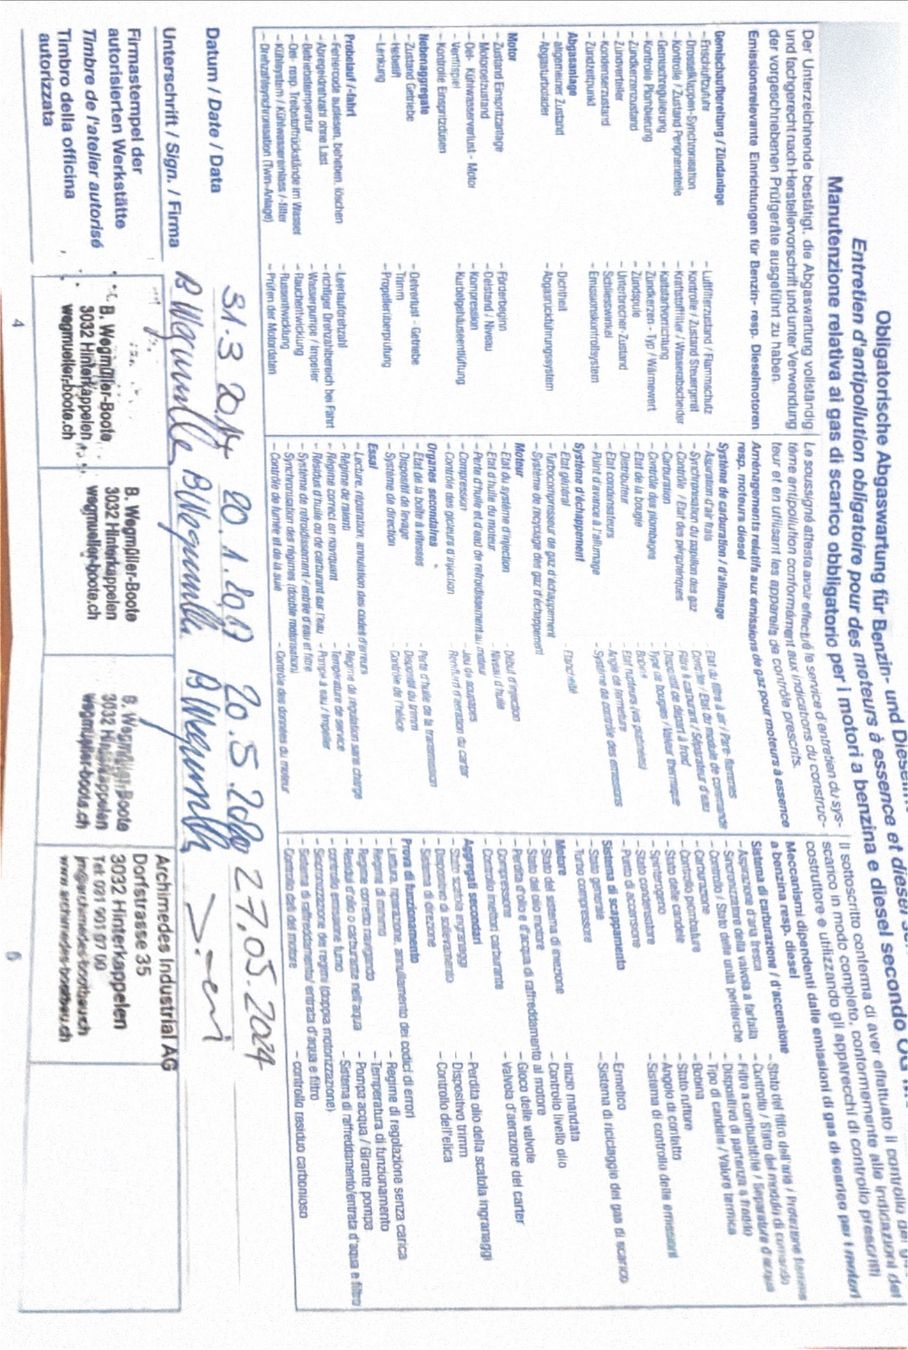 Obligatorische Abgaswartung für Benzin- und
Entretien d'antipollution obligatoire pour des moteurs à essence et diesel
Manutenzione relativa ai gas di scarico obbligatorio per i motori a benzina e diesel secondo
Der Unterzeichnende bestätigt, die Abgaswartung vollständig
und fachgerecht nach Herstellervorschrift und unter Verwendung
der vorgeschriebenen Prüfgeräte ausgeführt zu haben.
Emissionsrelevante Einrichtungen für Benzin- resp. Dieselmotoren
Gemischaufbereitung / Zündanlage
- Frischluftzufuhr
- Drosselklappen-Synchronisation
- Kontrolle / Zustand Peripherieteile
- Gemischregulierung
- Kontrolle Plombierung
- Zündkerzenzustand
- Zündverteiler
- Kondensatorzustand
- Zündzeitpunkt
- Luftfilterzustand / Flammschutz
- Kontrolle / Zustand Steuergerät
- Kraftstofffilter / Wasserabscheider
- Kaltstartvorrichtung
- Zündkerzen - Typ / Wärmewert
- Zündspule
- Unterbrecher-Zustand
- Schliesswinkel
- Emissionskontrollsystem
Abgasanlage
- allgemeiner Zustand
- Abgasturbolader
- Dichtheit
- Abgasrückführungssystem
Motor
- Zustand Einspritzanlage
- Motorölzustand
- Oel- Kühlwasserverlust - Motor
- Ventilspiel
- Kontrolle Einspritzdüsen
- Förderbeginn
- Oelstand / Niveau
- Kompression
- Kurbelgehäuseentlüftung
Nebenaggregate
- Zustand Getriebe
- Hebelift
- Lenkung
- Oelverlust - Getriebe
- Trimm
- Propellerüberprüfung
Probelauf / -fahrt
- Fehlercode auslesen, beheben, löschen
- Abregeldrehzahl ohne Last
- Betriebstemperatur
- Oel- resp. Treibstoffrückstände im Wasser
- Kühlsystem / Kühlwassereinlass / -filter
- Drehzahlsynchronisation (Twin-Anlage)
- Leerlaufdrehzahl
- richtiger Drehzahlbereich bei Fahrt
- Wasserpumpe / Impeller
- Rauchentwicklung
- Russentwicklung
- Prüfen der Motordaten
Le soussigné atteste avoir effectué le service d'entretien du sys-
tème antipollution conformément aux indications du construc-
teur et en utilisant les appareils de contrôle prescrits.
Aménagements relatifs aux émissions de gaz pour moteurs à essence
resp. moteurs diesel
Système de carburation / d'allumage
- Aspiration d'air frais
- Synchronisation du papillon des gaz
- Contrôle / Etat des périphériques
- Carburation
- Contrôle des plombages
- Etat de la bougie
- Distributeur
- Etat condensateurs
- Point d'avance à l'allumage
- Etat du filtre à air / Pare-flammes
- Contrôle / Etat du module de commande
- Filtre à carburant / Séparateur d'eau
- Dispositif de départ à froid
- Type de bougies / Valeur thermique
- Bobine
- Etat rupteurs (vis platinées)
- Angle de fermeture
- Système de contrôle des émissions
Système d'échappement
- Etat général
- Turbocompresseur de gaz d'échappement
- Système de recyclage des gaz d'échappement
- Etanchéité
Moteur
- Etat du système d'injection
- Etat d'huile du moteur
- Perte d'huile et d'eau de refroidissement au moteur
- Compression
- Contrôle des gicleurs d'injection
- Début d'injection
- Niveau d'huile
- Jeu de soupapes
- Reniflard d'aération du carter
Organes secondaires
- Etat de la boîte à vitesses
- Dispositif de levage
- Système de direction
- Perte d'huile de la transmission
- Dispositif du trimm
- Contrôle de l'hélice
Essai
- Lecture, réparation, annulation des codes d'erreurs
- Régime de ralenti
- Régime correct en naviguant
- Résidus d'huile ou de carburant sur l'eau
- Système de refroidissement / entrée d'eau et filtre
- Synchronisation des régimes (double motorisation)
- Contrôle de fumée et de la suie
- Régime de régulation sans charge
- Température de service
- Pompe à eau / Impeller
- Contrôle des données du moteur
Il sottoscritto conferma di aver effettuato il controllo dei
scarico in modo completo, conformemente alle indicazioni del
costruttore e utilizzando gli apparecchi di controllo prescritti
Meccanismi dipendenti dalle emissioni di gas di scarico per i motori
a benzina resp. diesel
Sistema di carburazione / d'accensione
- Aspirazione d'aria fresca
- Sincronizzatore della valvola a farfalla
- Controllo / Stato delle unità periferiche
- Carburazione
- Controllo piombature
- Stato delle candele
- Spinterogeno
- Stato condensatore
- Punto di accensione
- Stato del filtro dell'aria / Protezione fiamme
- Controllo / Stato del modulo di comando
- Filtro a combustibile / Separatore d'acqua
- Dispositivo di partenza a freddo
- Tipo di candele / Valore termica
- Bobina
- Stato ruttore
- Angolo di contatto
- Sistema di controllo delle emissioni
Sistema di scappamento
- Stato generale
- Turbo compressore
- Ermetico
- Sistema di riciclaggio dei gas di scarico
Motore
- Stato del sistema di iniezione
- Stato dell'olio motore
- Perdita d'olio e d'acqua di raffreddamento al motore
- Compressione
- Controllo iniettori carburante
- Inizio mandata
- Controllo livello olio
- Gioco delle valvole
- Valvola d'aerazione del carter
Aggregati secondari
- Stato scatola ingranaggi
- Dispositivo di sollevamento
- Sistema di direzione
- Perdita olio della scatola ingranaggi
- Dispositivo trimm
- Controllo dell'elica
Prova di funzionamento
- Lettura, riparazione, annullamento dei codici di errori
- Regime di minimo
- Regime corretto navigando
- Residui d'olio o carburante nell'acqua
- controllo emissione fumo
- Sincronizzazione dei regimi (doppia motorizzazione)
- Sistema di raffreddamento/ entrata d'acqua e filtro
- Controllo dati del motore
- Regime di regolazione senza carica
- Temperatura di funzionamento
- Pompa acqua / Girante pompa
- Sistema di raffreddamento/entrata d'acqua e filtro
- controllo residuo carbonioso
Datum / Date / Data
31.3 2014
20.1.2017
20.5.2020
27.05.2024
Unterschrift / Sign. / Firma
B Wegmüller
B Wegmüller
B Wegmüller
Firmastempel der
autorisierten Werkstätte
Timbre de l'atelier autorisé
Timbro della officina
autorizzata
B. Wegmüller-Boote
3032 Hinterkappelen
wegmueller-boote.ch
B. Wegmüller-Boote
3032 Hinterkappelen
wegmueller-boote.ch
B. Wegmüller-Boote
3032 Hinterkappelen
wegmueller-boote.ch
Archimedes Industrial AG
Dorfstrasse 35
3032 Hinterkappelen
Tel: 031 901 07 00
4
5